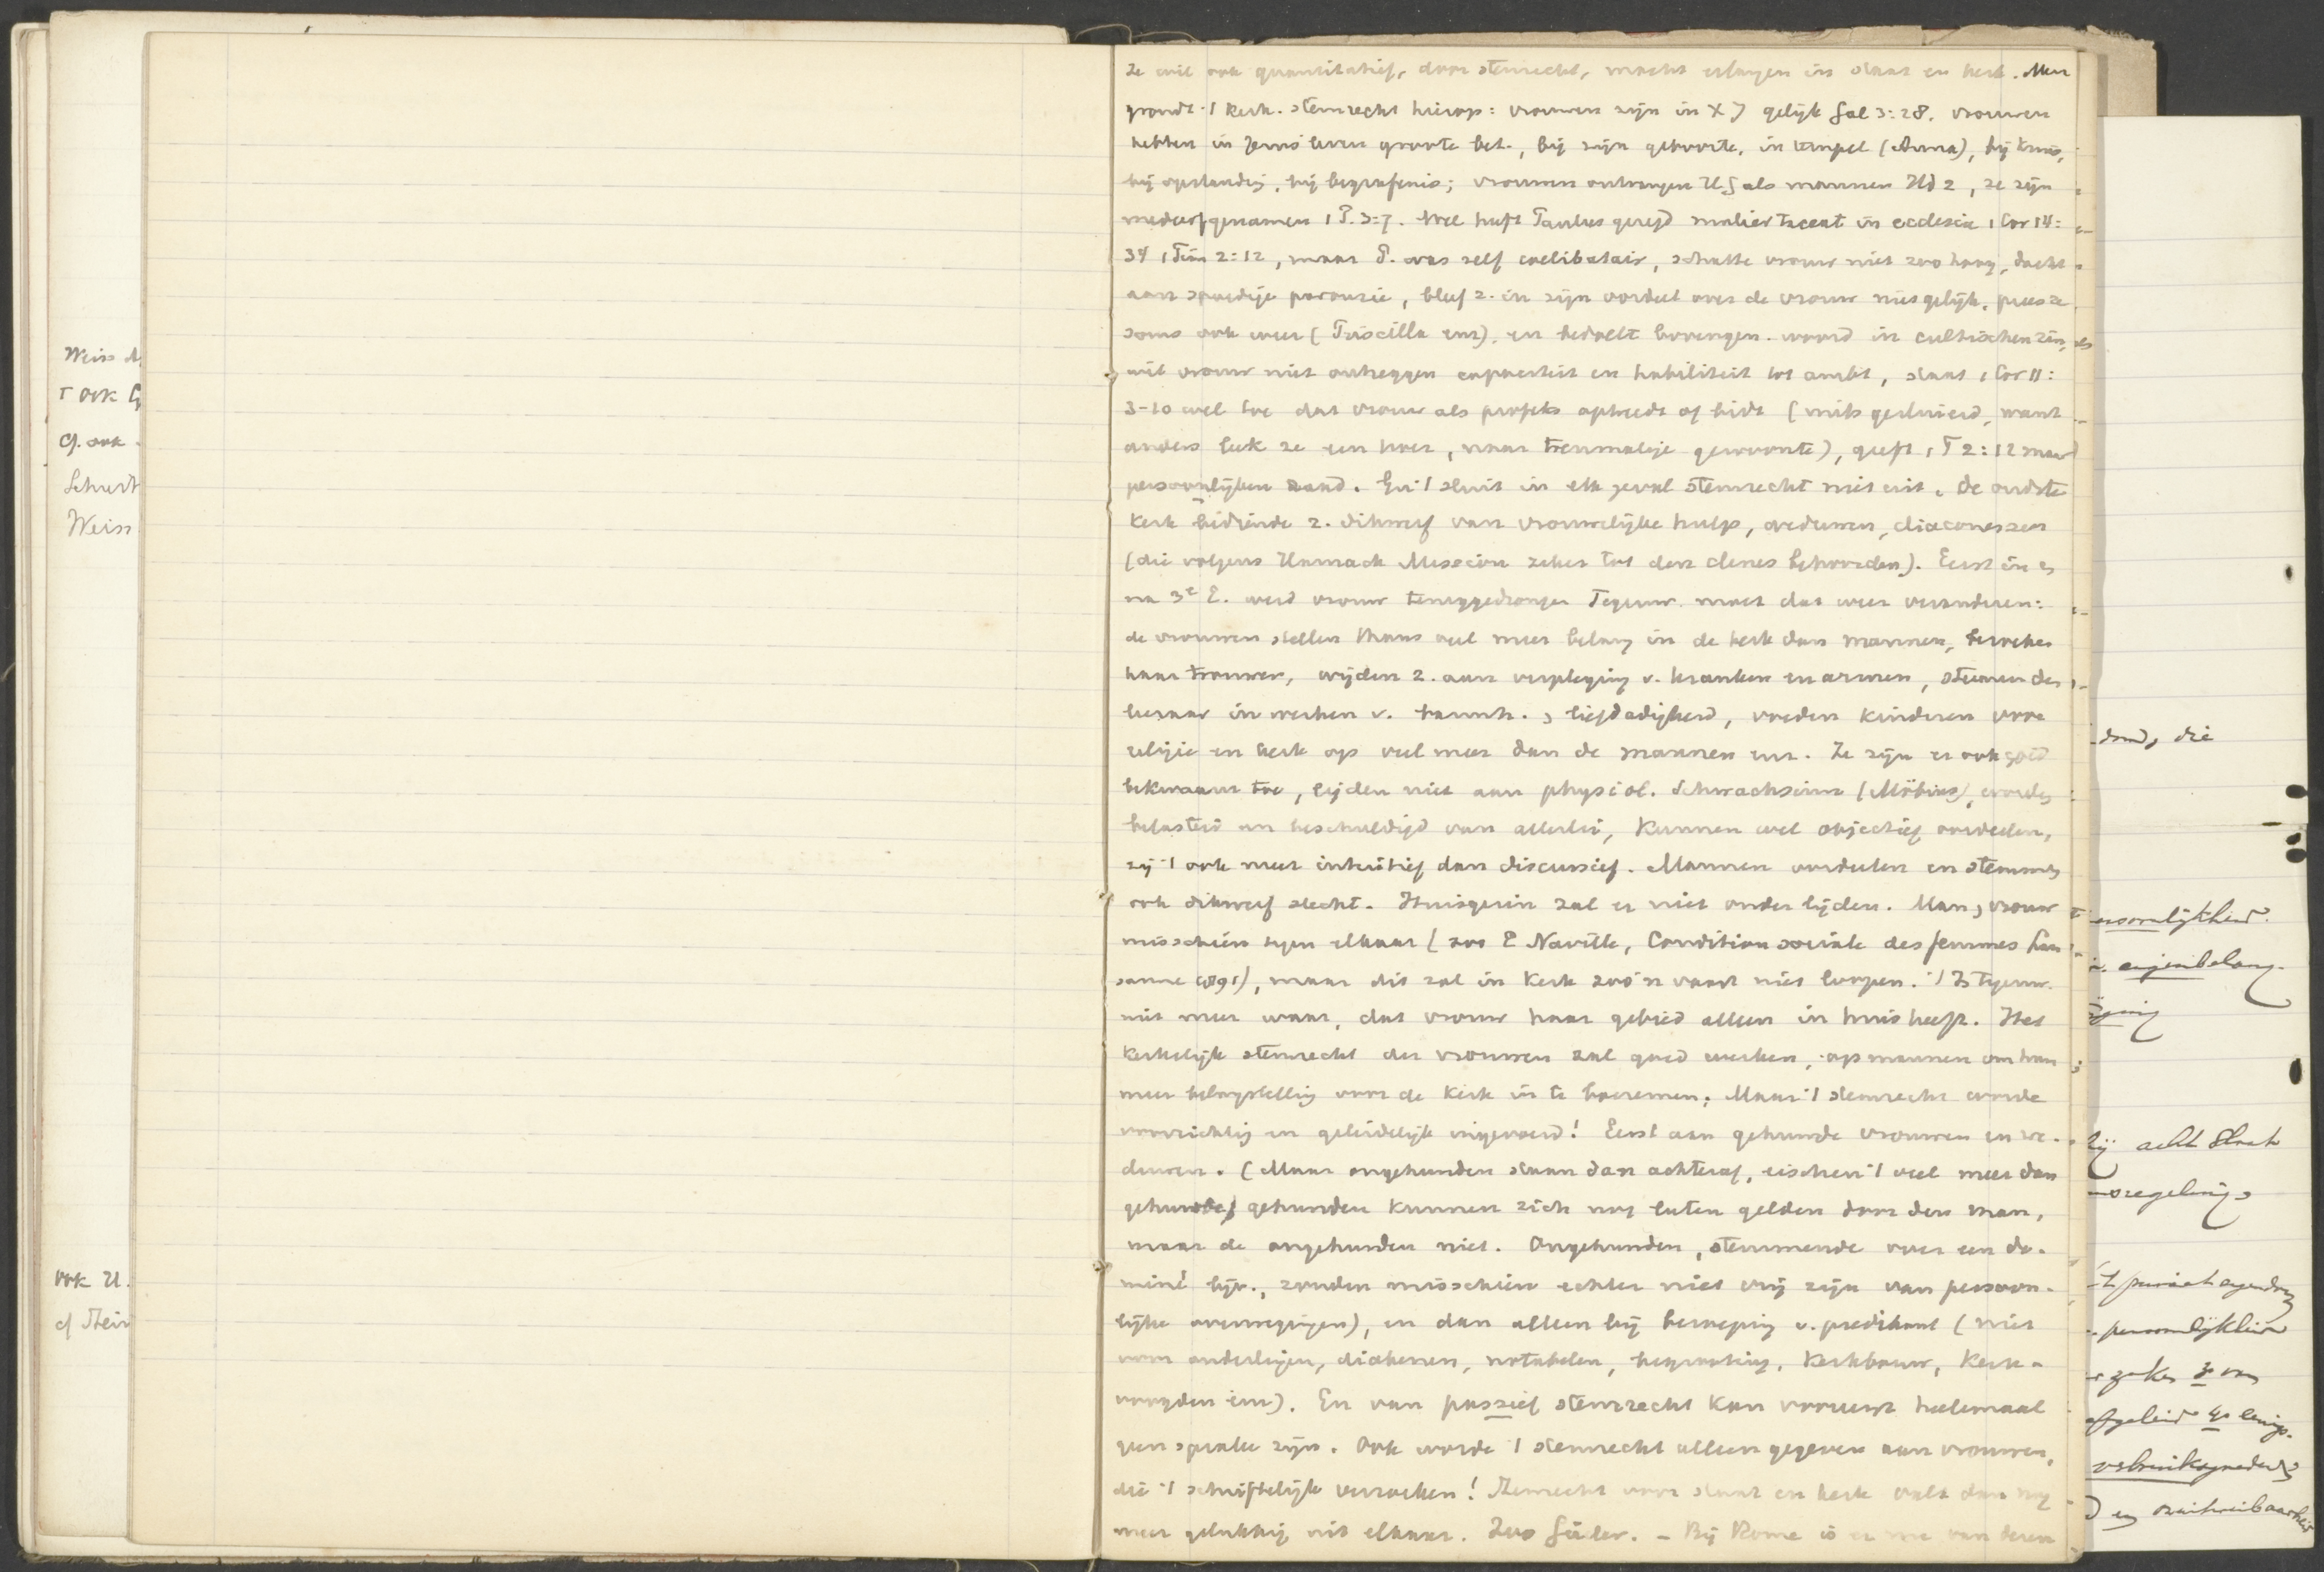 Weiss
ook
cf. ook
Weiss
ook U.
cf
ze wil ook quantitatief, door stemrecht, macht erlangen in staat en kerk. Men
grondt 't kerk. stemrecht hierop: vrouwen zijn in X J gelijk Gal 3:28. vrouwen
hebben in Jezus' leven groote bet., bij zijn geboorte, in tempel (Anna), bij kruis,
bij opstanding, bij begrafenis; vrouwen ontvangen H.G als mannen Hd 2, ze zijn
medeerfgenamen 1 P. 3:7. Wel heeft Paulus gezegd mulier taceat in ecclesia 1 Cor 14:
34 1 Tim 2:12, maar P. was zelf caelibatair, schatte vrouw niet zoo hoog, dacht
aan spoedige parousie, bleef z. in zijn oordeel over de vrouw niet gelijk, prees ze
soms ook weer (Priscilla enz), en bedoelt bovengen. woord in cultischen zin,
wil vrouw niet ontzeggen capaciteit en habiliteit tot ambt, staat 1 Cor 11:
3-10 wel toe dat vrouw als profetes optreedt of bidt (mits gesluierd, want
anders leek ze een hoer, naar toenmalige gewoonte), geeft 1 T 2:12 maar
persoonlijken raad. En 't sluit in elk geval stemrecht niet uit. De oudste
Kerk bediende z. dikwerf van vrouwelijke hulp, weduwen, diaconessen
(die volgens Harnack Mission zeker tot den clerus behoorden). Eerst in en
na 3e E. werd vrouw teruggedrongen Tegenw. moet dat weer veranderen:
de vrouwen stellen thans veel meer belang in de kerk dan mannen, bezoeken
haar trouwer, wijden z. aan verpleging v. kranken en armen, steunen den
leeraar in werken v. barmh. & liefdadigheid, voeden kinderen voor
religie en kerk op veel meer dan de mannen enz. Ze zijn er ook goed
bekwaam toe, lijden niet aan physiol. Schwachsinn (Möbius), worden
belasterd en beschuldigd van allerlei, kunnen wel objectief oordeelen,
zij 't ook meer intuïtief dan discursief. Mannen oordeelen en stemmen
ook dikwerf slecht. Huisgezin zal er niet onder lijden. Man & vrouw
misschien tegen elkaar (zoo E Naville, Condition sociale des femmes Lau
sanne 1891), maar dit zal in Kerk zoo'n vaart niet loopen. 't Is tegenw.
niet meer waar, dat vrouw haar gebied alleen in huis heeft. Het
Kerkelijk stemrecht der vrouwen zal goed werken, op mannen om hun
meer belangstelling voor de Kerk in te boezemen. Maar 't stemrecht worde
voorzichtig en geleidelijk ingevoerd! Eerst aan gehuwde vrouwen en we-
duwen. (Maar ongehuwden staan dan achteraf, eischen 't veel meer dan
gehuwde; gehuwden kunnen zich nog laten gelden door den man,
maar de ongehuwden niet. Ongehuwden, stemmende over een do-
miné bijv., zouden misschien echter niet vrij zijn van persoon-
lijke overwegingen), en dan alleen bij beroeping v. predikant (niet
voor ouderlingen, diakenen, notabelen, begrooting, Kerkbouw, Kerk-
voogden enz). En van passief stemrecht kan vooreerst heelemaal
geen sprake zijn. Ook worde 't stemrecht alleen gegeven aan vrouwen,
die 't schriftelijk verzoeken! Stemrecht voor staat en kerk valt dan nog
meer gelukkig uit elkaar. Zoo Güder. - Bij Rome is er nu van deren
die
eigenbelang
bij acht
regeling
persoonlijkheid
van
afgeleid
en